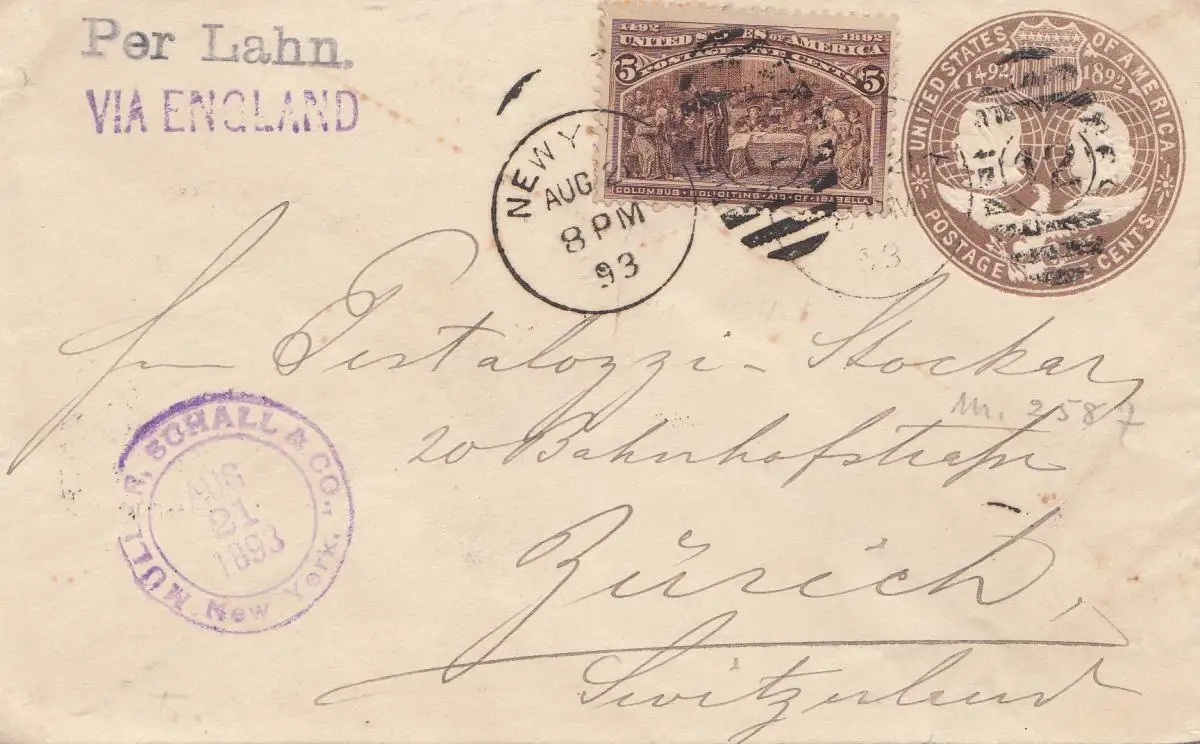 Per Lahn.
VIA ENGLAND
1492 1892
UNITED STATES OF AMERICA
5 POSTAGE FIVE CENTS 5
COLUMBUS SOLICITING AID OF ISABELLA
UNITED STATES OF AMERICA
1492 1892
POSTAGE CENTS
NEW Y
AUG 2
8 PM
93
PM
93
Pestalozzi-Stockar
Nr. 2587
20 Bahnhofstraße
MULLER, SCHALL & CO.,
AUG
21
1893
New York.
Zürich,
Switzerland